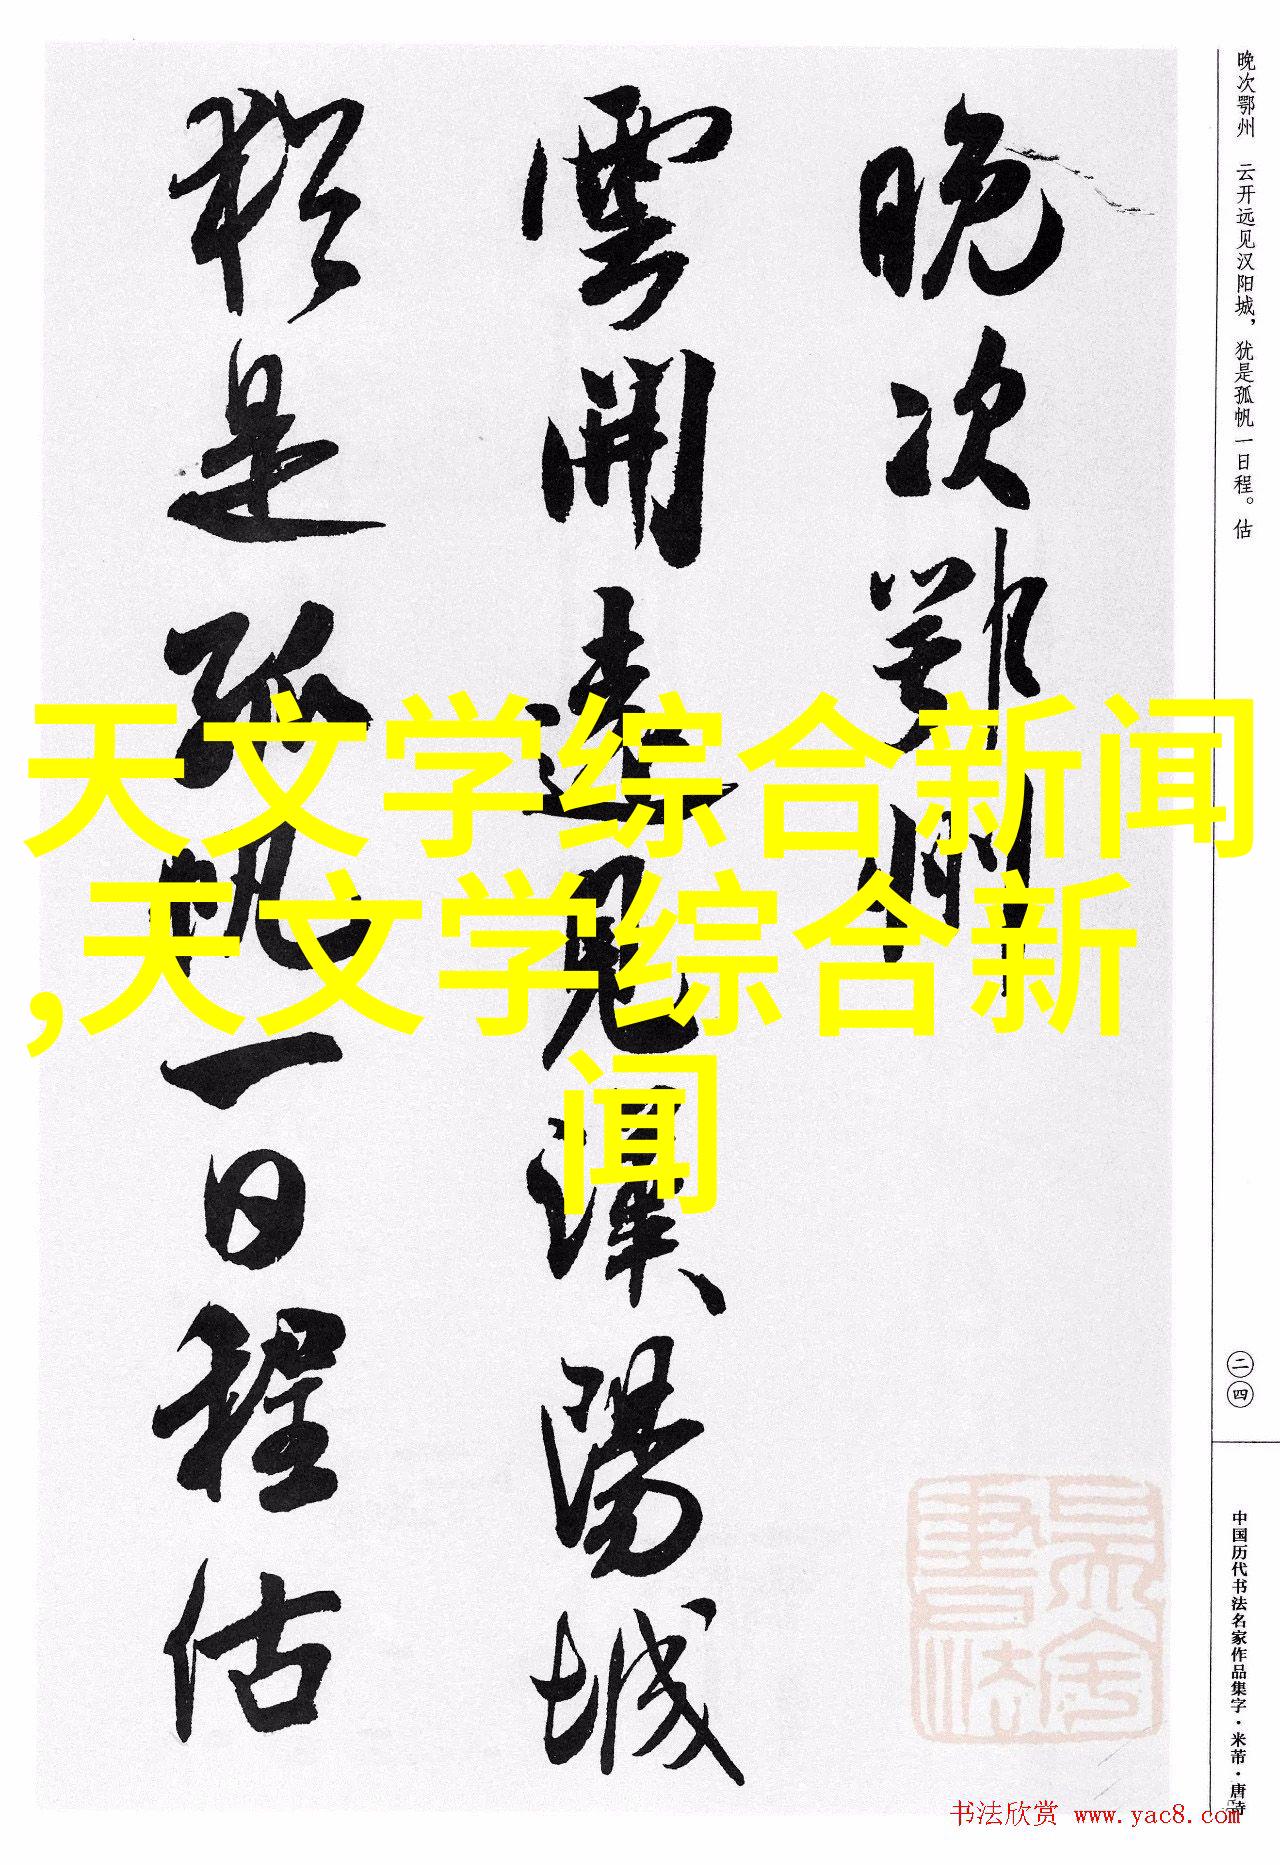 晚次鄂州 云开远见汉阳城，犹是孤帆一日程。估
晚次鄂州
雲開遠見漢陽城
猶是孤帆一日程估
天文学综合新闻
,天文学综合新
闻
二四
中国历代书法名家作品集字·米芾·唐诗
书法欣赏 www.yac8.com